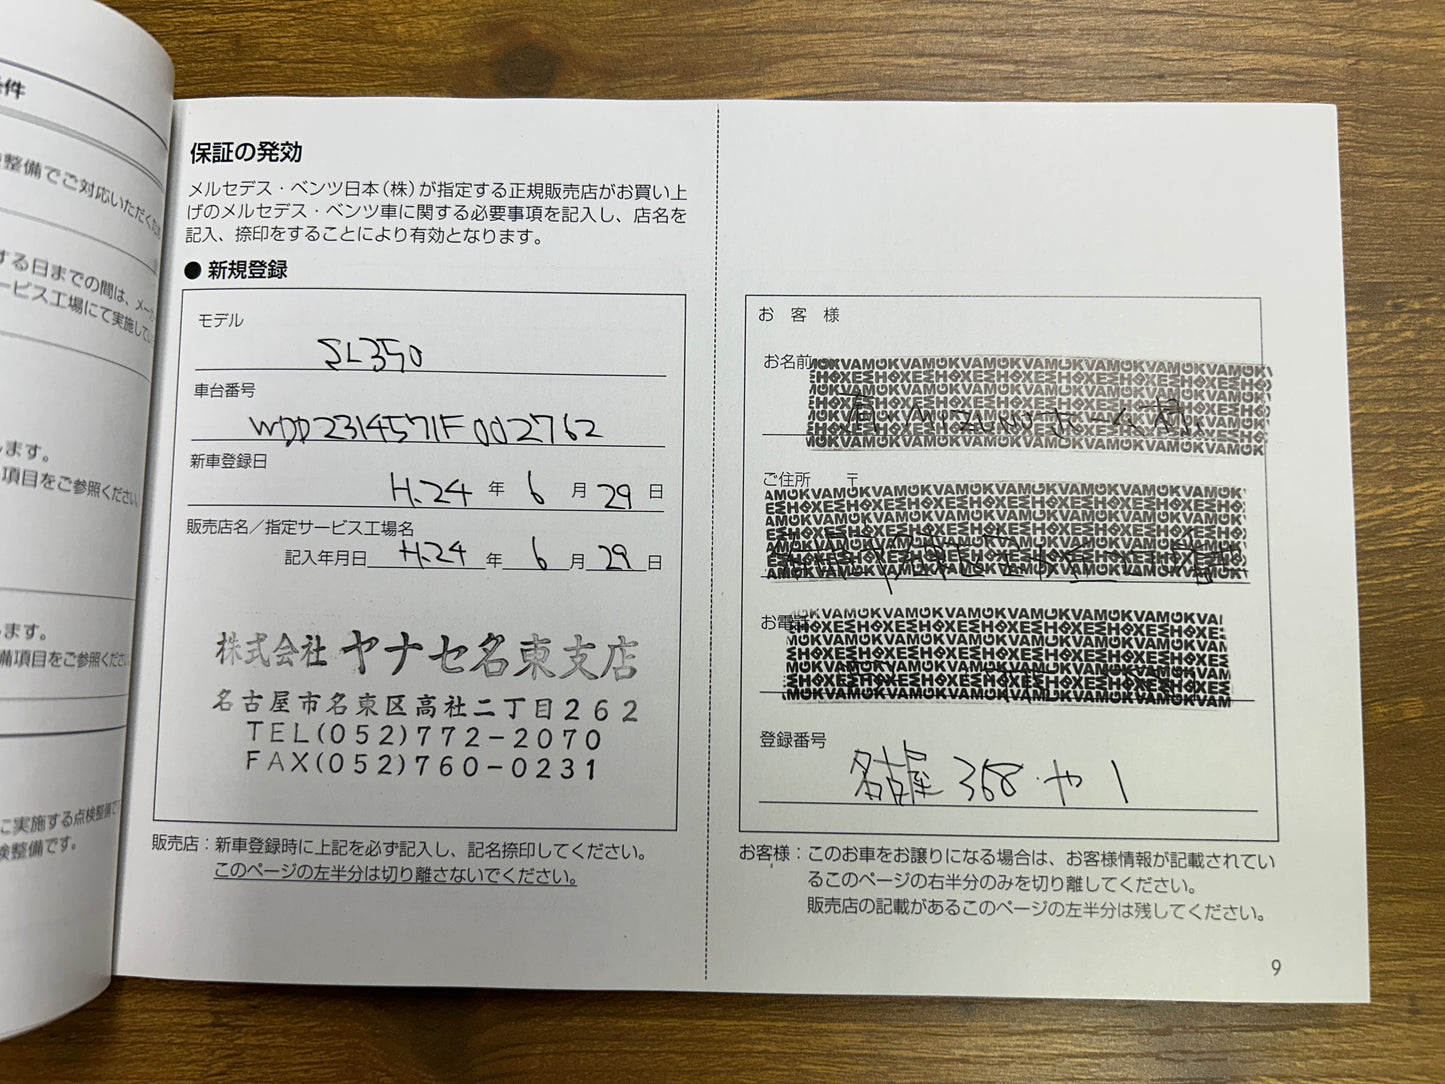 件
整備でご対応いただくため
する日までの間は、メーカー
ービス工場にて実施してい
します。
項目をご参照ください。
します。
備項目をご参照ください。
に実施する点検整備で
検整備です。
保証の発効
メルセデス・ベンツ日本（株）が指定する正規販売店がお買い上
げのメルセデス・ベンツ車に関する必要事項を記入し、店名を
記入、捺印をすることにより有効となります。
● 新規登録
モデル
SL350
車台番号
WDD2314571F002762
新車登録日
H.24 年 6 月 29 日
販売店名／指定サービス工場名
記入年月日 H.24 年 6 月 29 日
株式会社 ヤナセ名東支店
名古屋市名東区高社二丁目262
TEL(052)772-2070
FAX(052)760-0231
販売店：新車登録時に上記を必ず記入し、記名捺印してください。
このページの左半分は切り離さないでください。
お 客 様
お名前
ご住所 〒
お電話
登録番号
名古屋 368 や 1
お客様：このお車をお譲りになる場合は、お客様情報が記載されてい
るこのページの右半分のみを切り離してください。
販売店の記載があるこのページの左半分は残してください。
9